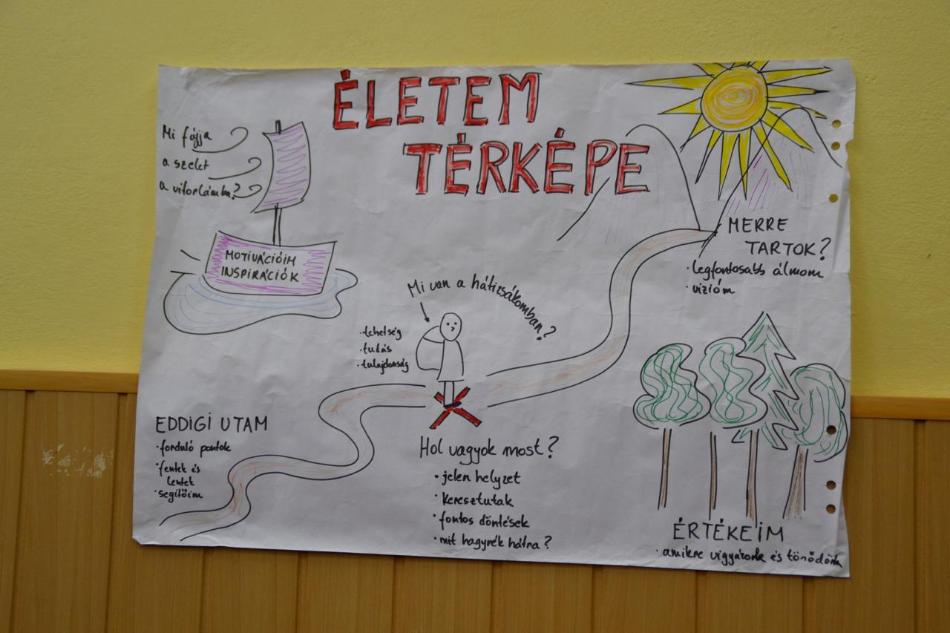 ÉLETEM
TÉRKÉPE
Mi fújja
a szelet
a vitorlámba?
MOTIVÁCIÓIM
INSPIRÁCIÓK
MERRE
TARTOK?
• legfontosabb álmom
• vízióm
Mi van a hátizsákomban?
• tehetség
• tudás
• tulajdonság
EDDIGI UTAM
• forduló pontok
• fentek és
lentek
• segítőim
Hol vagyok most?
• jelen helyzet
• keresztutak
• fontos döntések
• mit hagynék hátra?
ÉRTÉKEIM
• amikre vigyázunk és törődünk